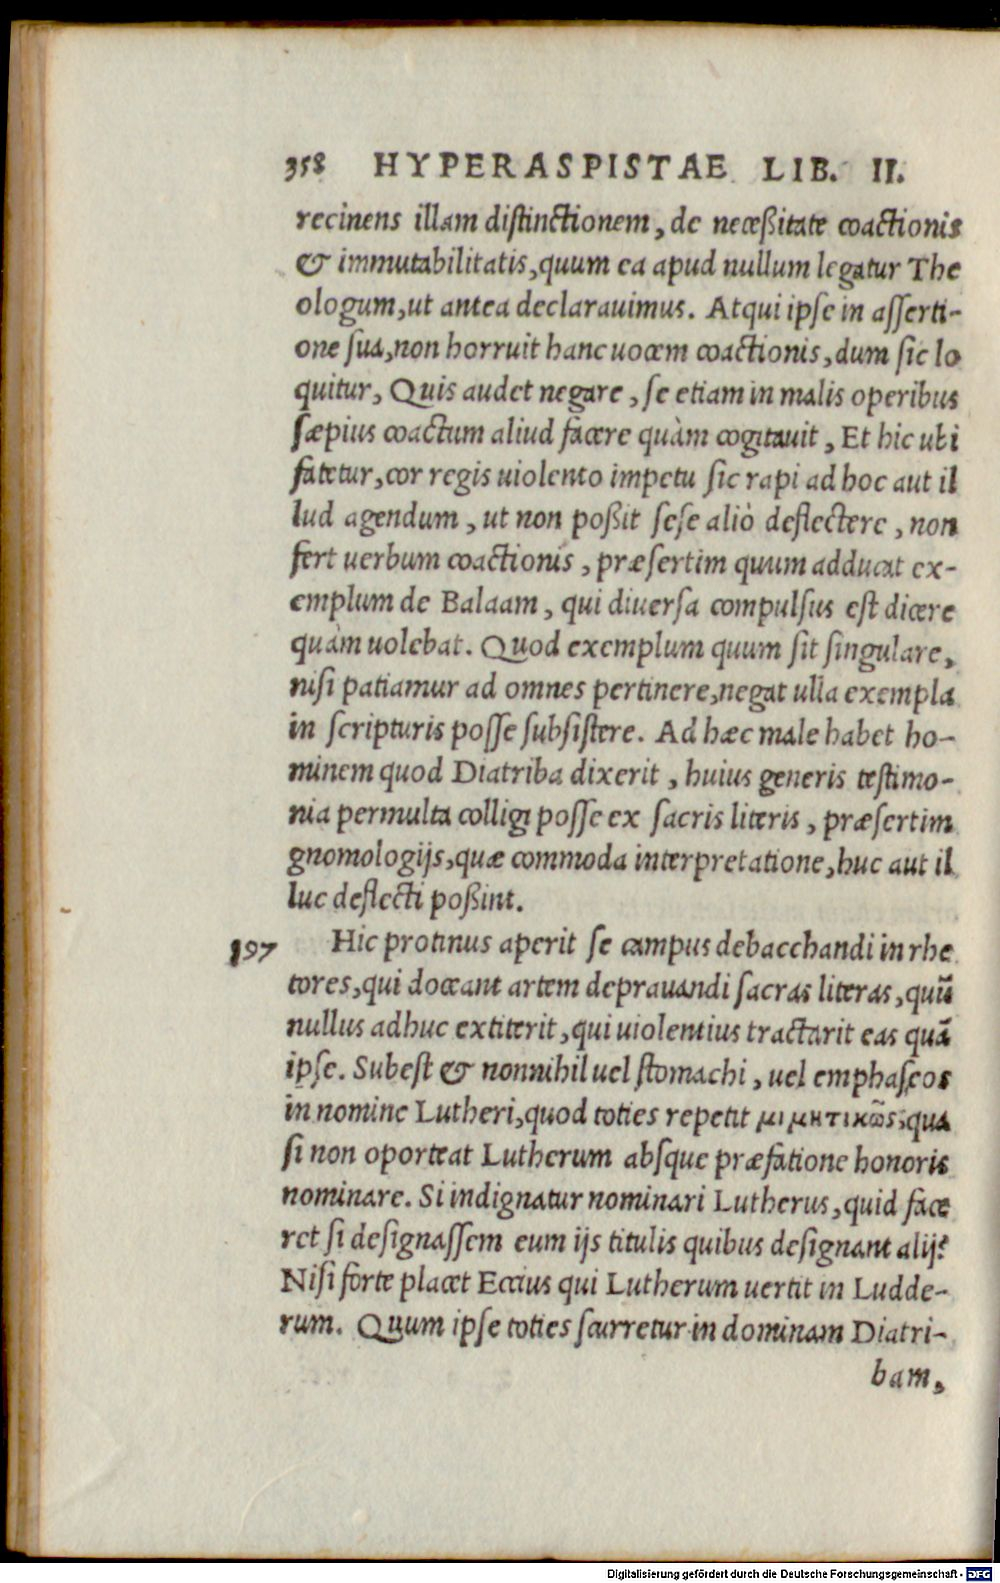 358 HYPERASPISTAE LIB. II.
recinens illam distinctionem, de neceßitate coactionis
& immutabilitatis, quum ea apud nullum legatur The
ologum, ut antea declarauimus. Atqui ipse in asserti-
one sua, non horruit hanc uocem coactionis, dum sic lo
quitur, Quis audet negare, se etiam in malis operibus
sæpius coactum aliud facere quàm cogitauit, Et hic ubi
fatetur, cor regis uiolento impetu sic rapi ad hoc aut il
lud agendum, ut non poßit sese aliò deflectere, non
fert uerbum coactionis, præsertim quum adducat ex-
emplum de Balaam, qui diuersa compulsus est dicere
quàm uolebat. Quod exemplum quum sit singulare,
nisi patiamur ad omnes pertinere, negat ulla exempla
in scripturis posse subsistere. Ad hæc male habet ho-
minem quod Diatriba dixerit, huius generis testimo-
nia permulta colligi posse ex sacris literis, præsertim
gnomologijs, quæ commoda interpretatione, huc aut il
luc deflecti poßint.
197 Hic protinus aperit se campus debacchandi in rhe
tores, qui doceant artem deprauandi sacras literas, quũ
nullus adhuc extiterit, qui uiolentius tractarit eas quã
ipse. Subest & nonnihil uel stomachi, uel emphaseos
in nomine Lutheri, quod toties repetit μιμητικῶς, qua
si non oporteat Lutherum absque præfatione honoris
nominare. Si indignatur nominari Lutherus, quid face
ret si designassem eum ijs titulis quibus designant alij?
Nisi forte placet Eccius qui Lutherum uertit in Ludde-
rum. Quum ipse toties scurretur in dominam Diatri-
bam,
Digitalisierung gefördert durch die Deutsche Forschungsgemeinschaft - DFG